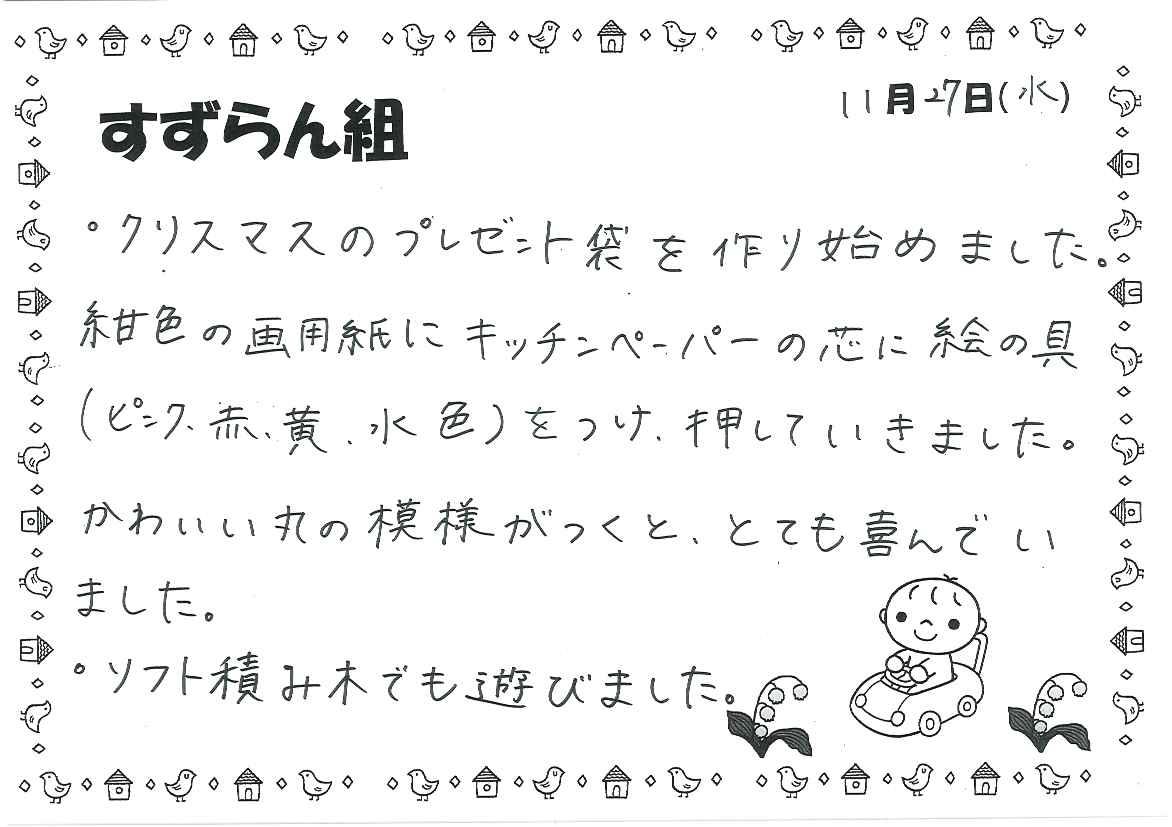 11月27日(水)
すずらん組
・クリスマスのプレゼント袋を作り始めました。
紺色の画用紙にキッチンペーパーの芯に絵の具
(ピンク、赤、黄、水色)をつけ、押していきました。
かわいい丸の模様がつくと、とても喜んでい
ました。
・ソフト積み木でも遊びました。